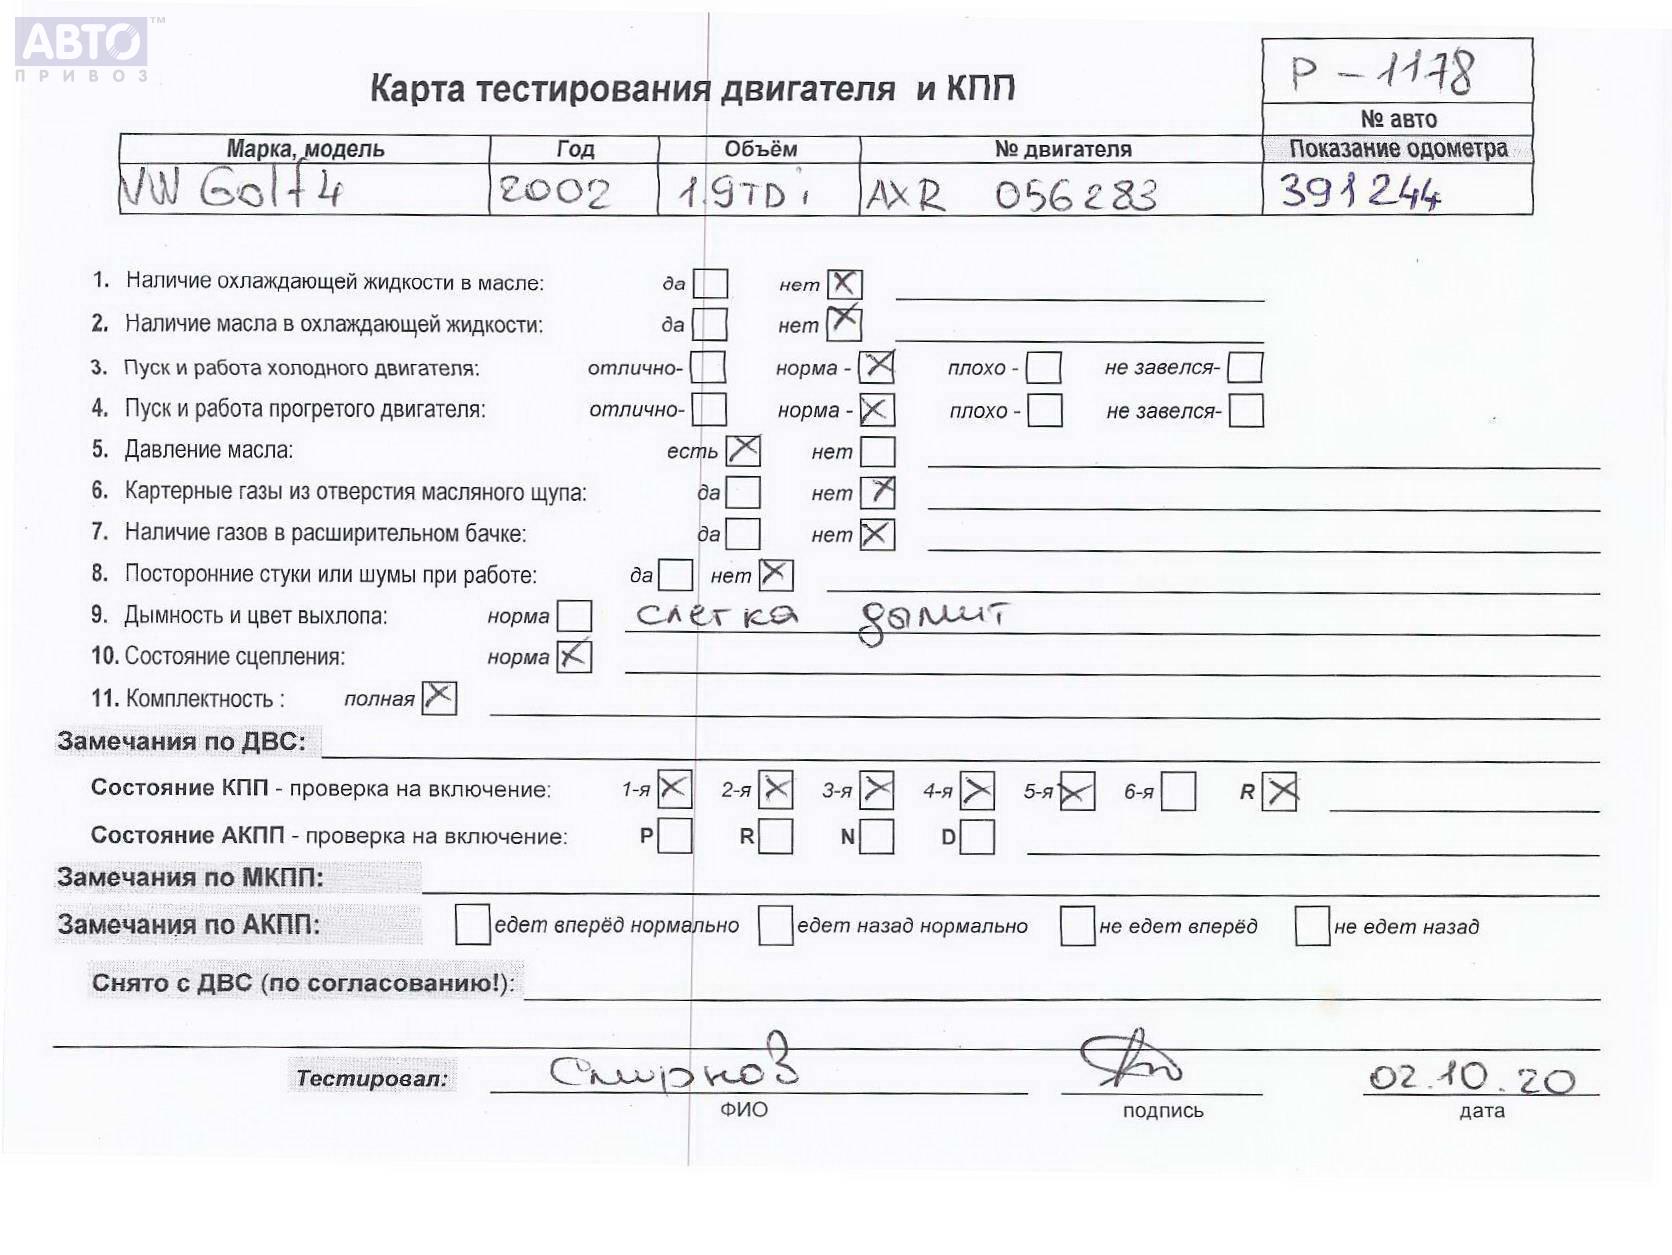 АВТО™
ПРИВОЗ
P-1178
Карта тестирования двигателя и КПП
№ авто
Марка, модель Год Объём № двигателя Показание одометра
VW Golf 4 2002 1.9TDi AXR 056283 391244
1. Наличие охлаждающей жидкости в масле: да нет X
2. Наличие масла в охлаждающей жидкости: да нет X
3. Пуск и работа холодного двигателя: отлично- норма - X плохо - не завелся-
4. Пуск и работа прогретого двигателя: отлично- норма - X плохо - не завелся-
5. Давление масла: есть X нет
6. Картерные газы из отверстия масляного щупа: да нет X
7. Наличие газов в расширительном бачке: да нет X
8. Посторонние стуки или шумы при работе: да нет X
9. Дымность и цвет выхлопа: норма слегка дымит
10. Состояние сцепления: норма X
11. Комплектность : полная X
Замечания по ДВС:
Состояние КПП - проверка на включение: 1-я X 2-я X 3-я X 4-я X 5-я X 6-я R X
Состояние АКПП - проверка на включение: P R N D
Замечания по МКПП:
Замечания по АКПП: едет вперёд нормально едет назад нормально не едет вперёд не едет назад
Снято с ДВС (по согласованию!):
Тестировал: Смирнов 02.10.20
ФИО подпись дата